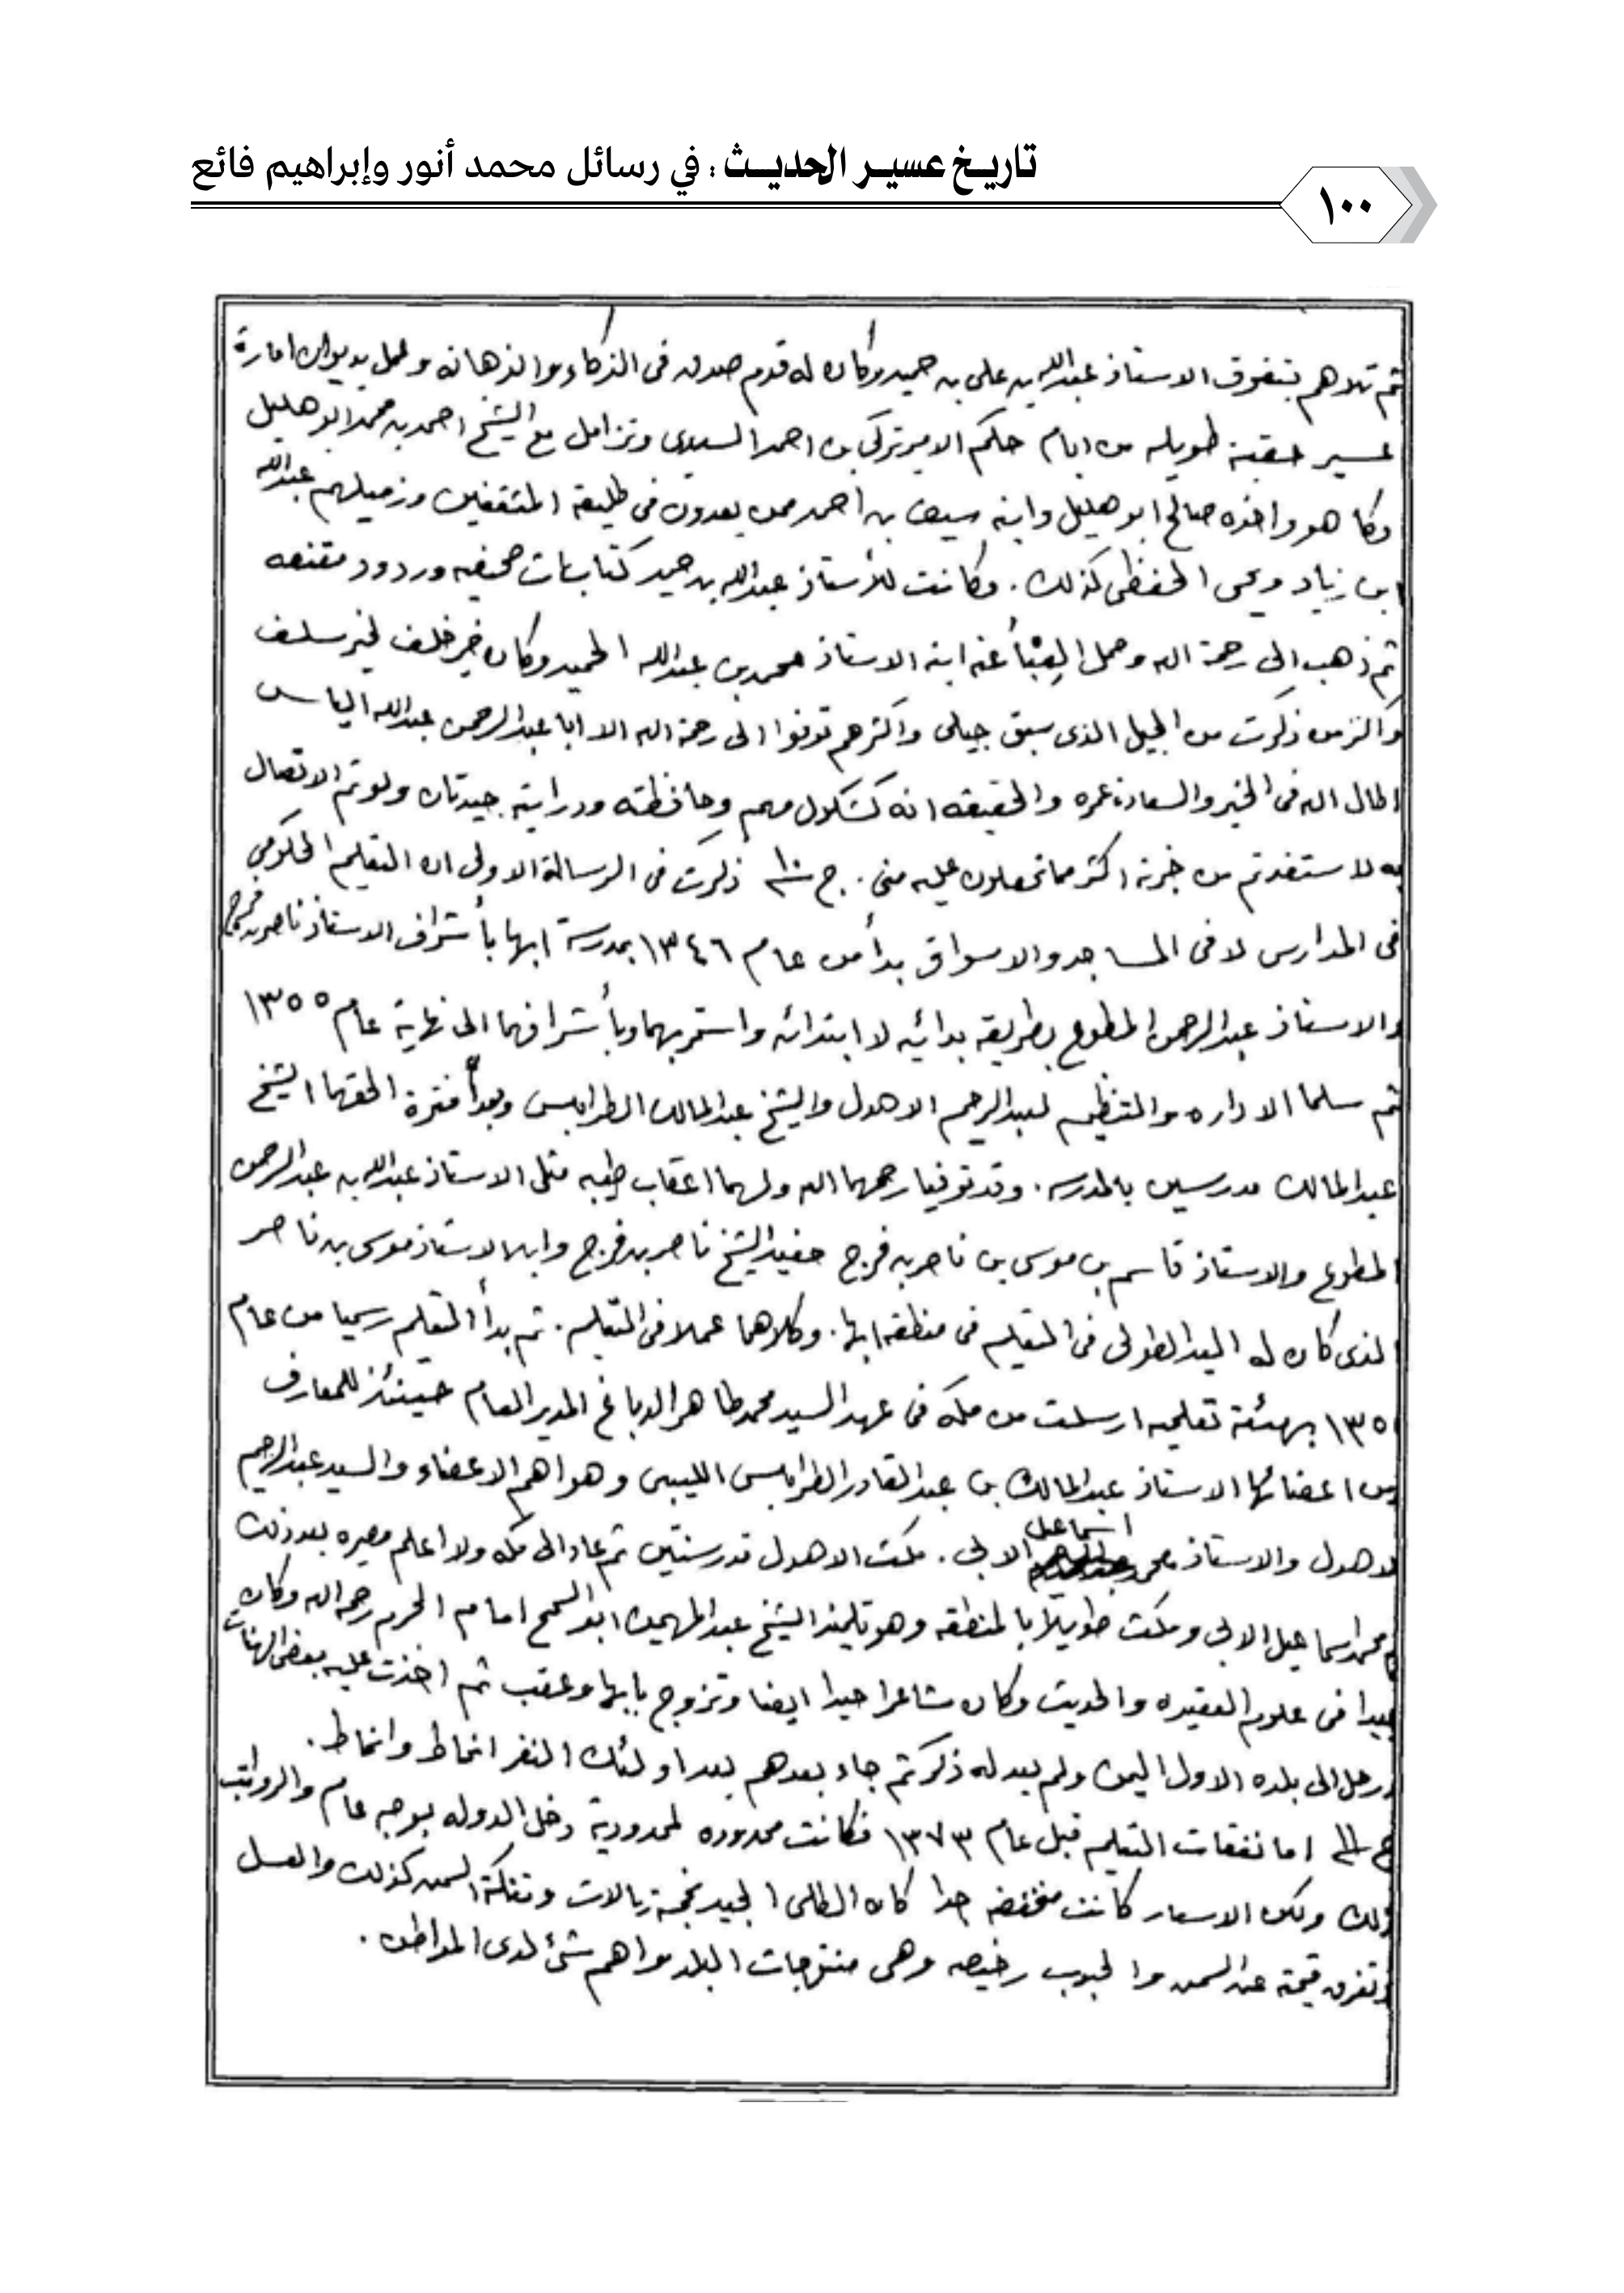 تاريخ عسير الحديث : في رسائل محمد أنور وإبراهيم فائع
١٠٠
ثم تلاهم بتفوق الاستاذ عبدالله بن علي بن حميد وكان له قدم صدق في الذكاء والذهانه وعمل بديوان امارة
عسير حقبة طويله من ايام حكم الامير تركي بن احمد السديري وتزامل مع الشيخ احمد بن محمد ابوهليل
وكا هو واخوه صالح ابو هليل وابنه سيف بن احمد ممن يعدون في طليعة المثقفين وزميلهم عبدالله
ابن زياد ويحي الحفظي كذلك . وكانت للأستاذ عبدالله بن حميد كتابات صحيفيه وردود مقنعه
ثم ذهب إلى رحمة الله وحمل العبْأ عنه ابنه الاستاذ محمد بن عبدالله الحميد وكان خير خلف لخير سلف
وأكثر من ذكرت من الجيل الذي سبق جيلي واكثرهم توفوا الى رحمة الله الا ابا عبدالرحمن عبدالله الياس
اطال الله في الخير والسعادة عمره والحقيقه انه كشكول مهم وحافظته ودرايته جيدتان ولو تم الاتصال
به لاستفدتم من خبرته اكثر مما تحصلون عليه مني . ج ١٠ ذكرت في الرسالة الاولى ان التعليم الحكومي
في المدارس لا في المساجد والاسواق بدأ من عام ١٣٤٦ بمدرسة ابها بأشراف الاستاذ ناصر بن فرج
والاستاذ عبدالرحمن المطوع بطريقه بدائيه لا ابتدائه واستمر بهما وبأشرافهما الى نهاية عام ١٣٥٥
ثم سلما الاداره والتنظيم لعبدالرحيم الاهدل والشيخ عبدالمالك الطرابلسي وبعد فترة الحقهما الشيخ
عبدالمالك مدرسين بالمدرسه . وقد توفيا رحمهما الله ولهما اعقاب طيبه مثل الاستاذ عبدالله بن عبدالرحمن
المطوع والاستاذ قاسم بن موسى بن ناصر بن فرج حفيد الشيخ ناصر بن فرج وابن الاستاذ موسى بن ناصر
الذي كان له اليد الطولى في التعليم في منطقه ابها . وكلاهما عملا في التعليم . ثم بدأ التعليم رسميا من عام
١٣٥ بهئية تعليميه ارسلت من مكه في عهد السيد محمد طاهر الدباغ المدير العام حينئذ للمعارف
من اعضائها الاستاذ عبدالمالك بن عبدالقادر الطرابلسي الليبي وهو اهم الاعضاء والسيد عبدالرحيم
لاهدل والاستاذ محمد اسماعيل الابي . مكث الاهدل قدر سنتين ثم عاد الى مكه ولا اعلم مصيره بعد ذلك
محمد اسماعيل الابي ومكث طويلاً بالمنطقه وهو تلميذ الشيخ عبدالمهيمن ابو السمح امام الحرم رحمه الله وكان
جيدا في علوم العقيده والحديث وكان شاعرا جيدا ايضا وتزوج بابها وعقب ثم اخذت عليه بعض الهنات
ورحل الى بلده الاول اليمن ولم يعد له ذكر ثم جاء بعدهم بعد اولئك النفر انماط وانماط .
ج ١١ اما نفقات التعليم قبل عام ١٣٧٣ فكانت محدوده لمحدودية دخل الدوله بوجه عام والرواتب
كذلك ولكن الاسعار كانت منخفضه جدا كان الطلي الجيد بخمسة ريالات وتنكة السمن كذلك والعسل
تفرق قيمته عن السمن والحبوب رخيصه وهي منتوجات البلد واهم شئ لدى المواطن .